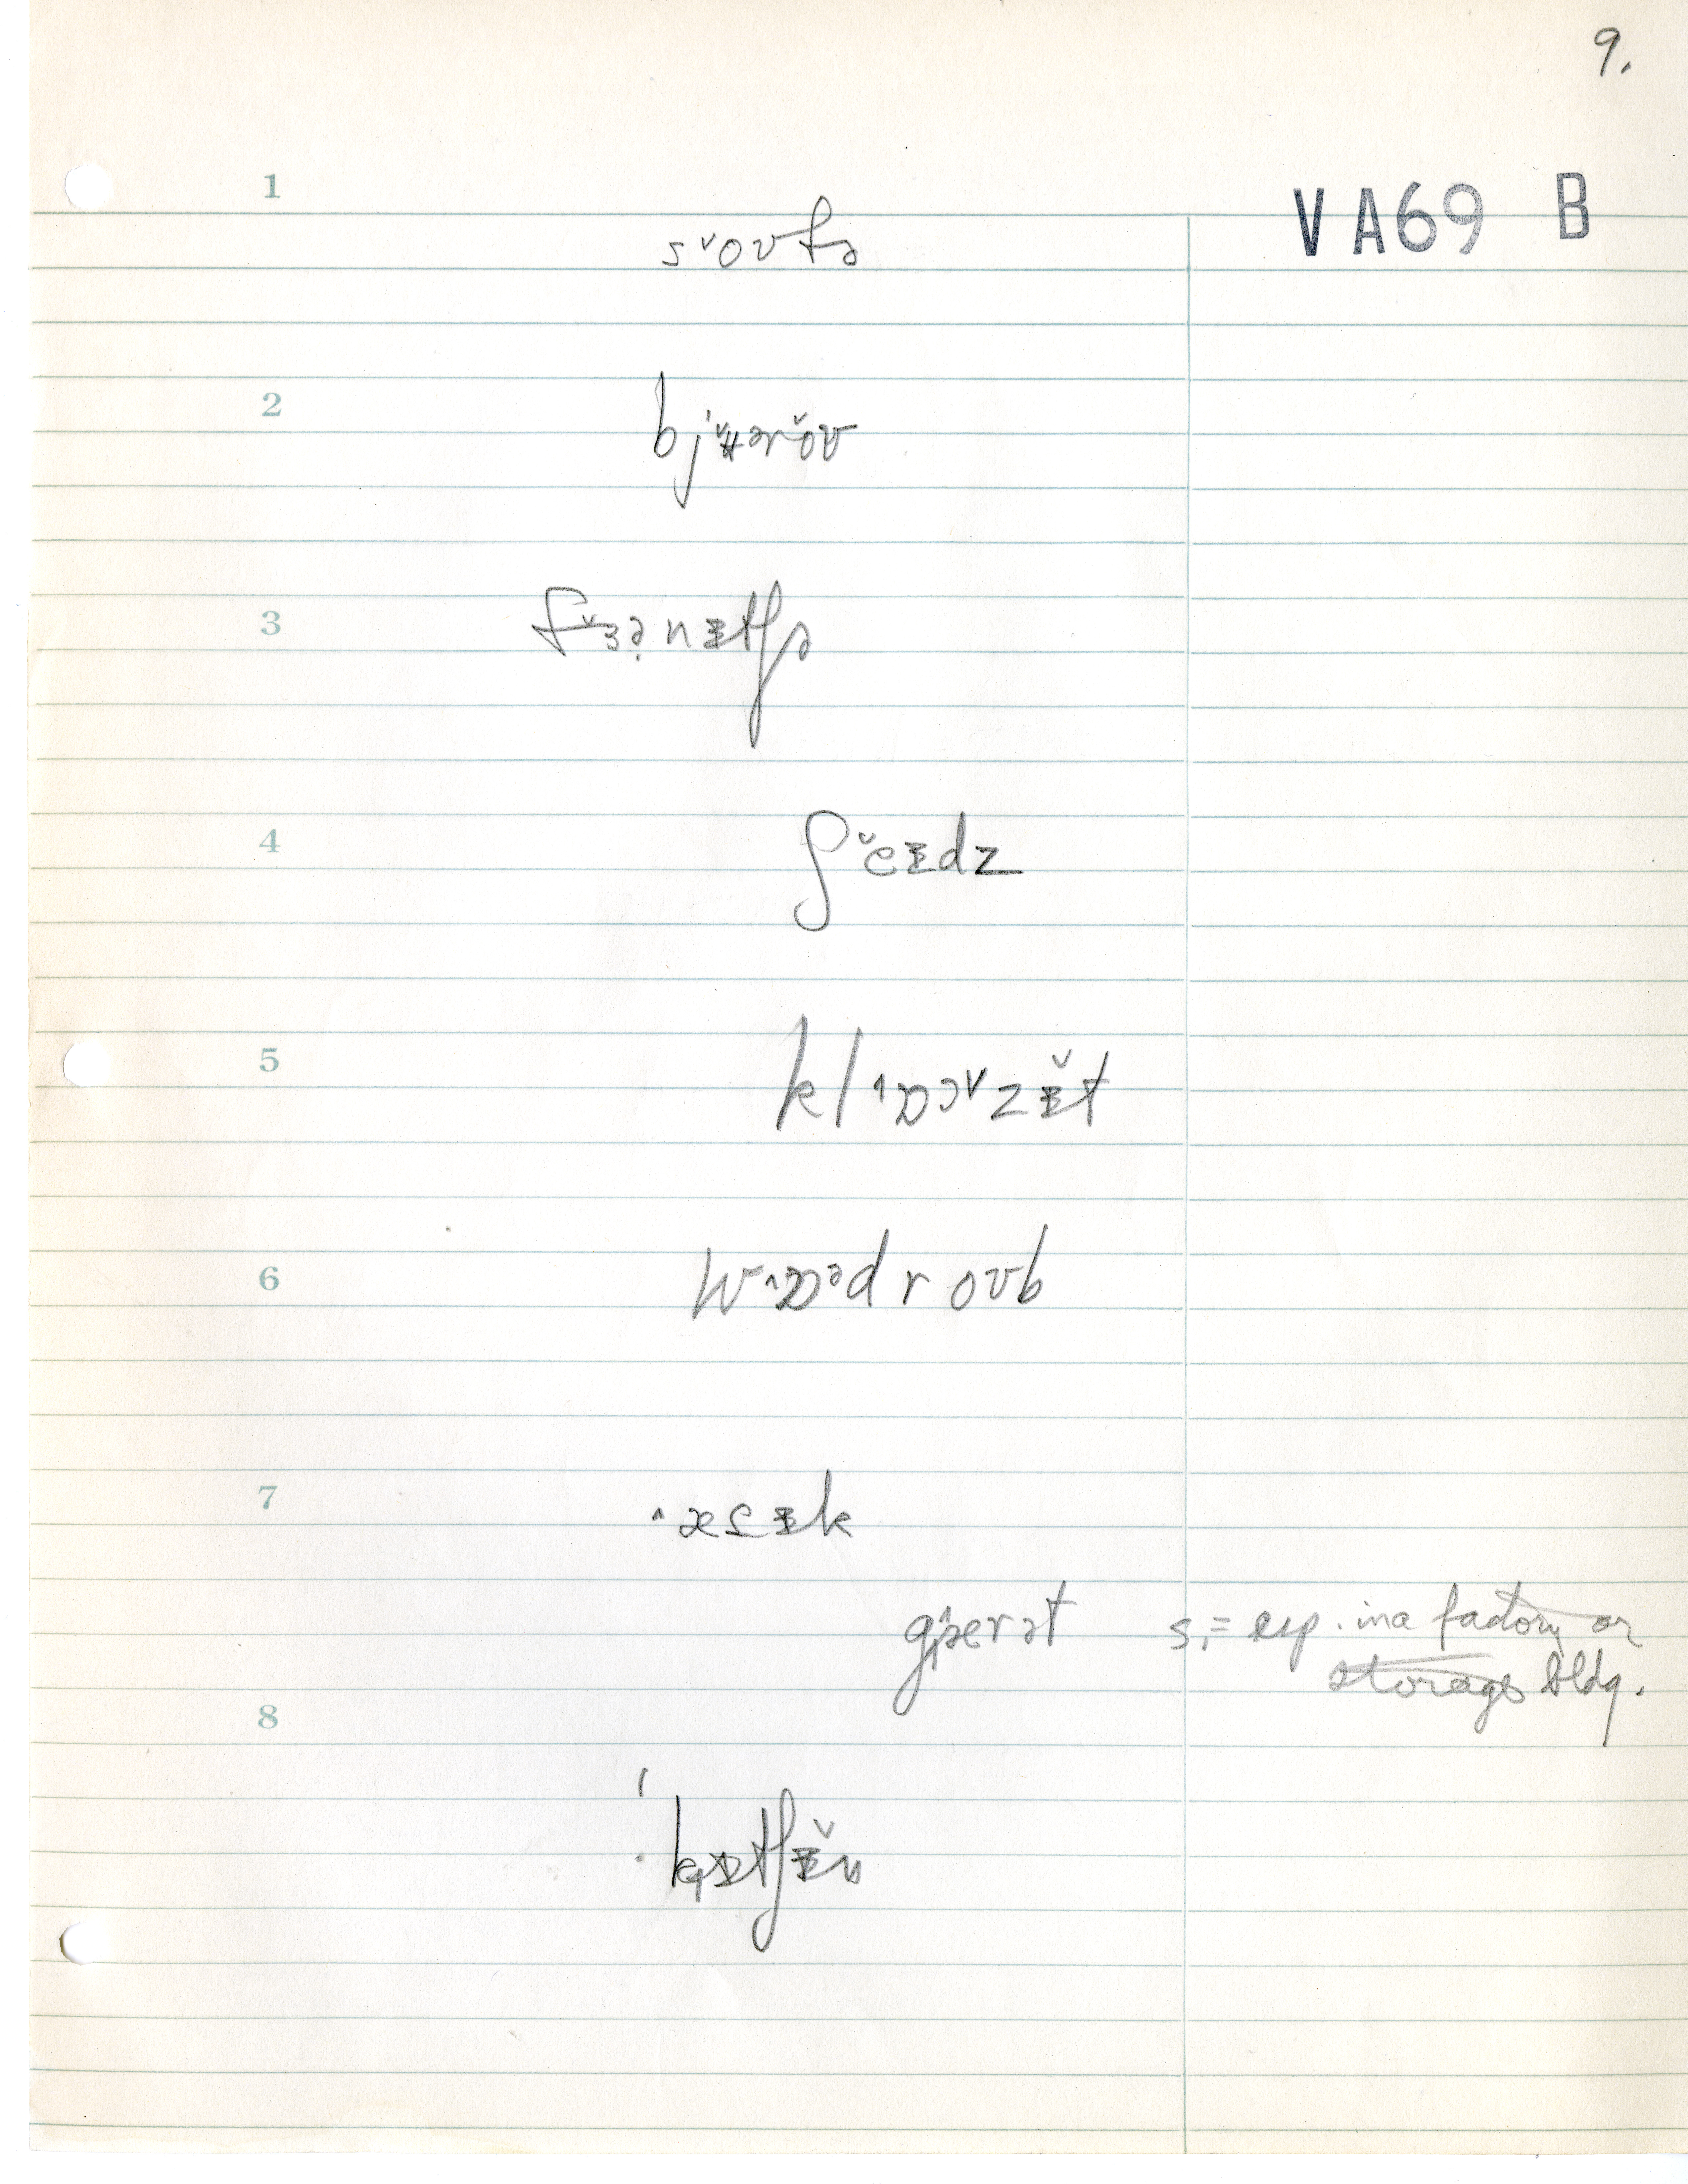 9.
VA69 B
1
s˅oʊfə
2
bjʉ˅ərŏʊ
3
f˅ɜənɪtʃə
4
ʃ˅eɪdz
5
kl˄ɒɔ˅zɪ̆t
6
w˄ɒədroʊb
7
˄ætɪk
gjærət s.= esp. in a factory or
storage bldg.
8
kɪtʃɪ̆n